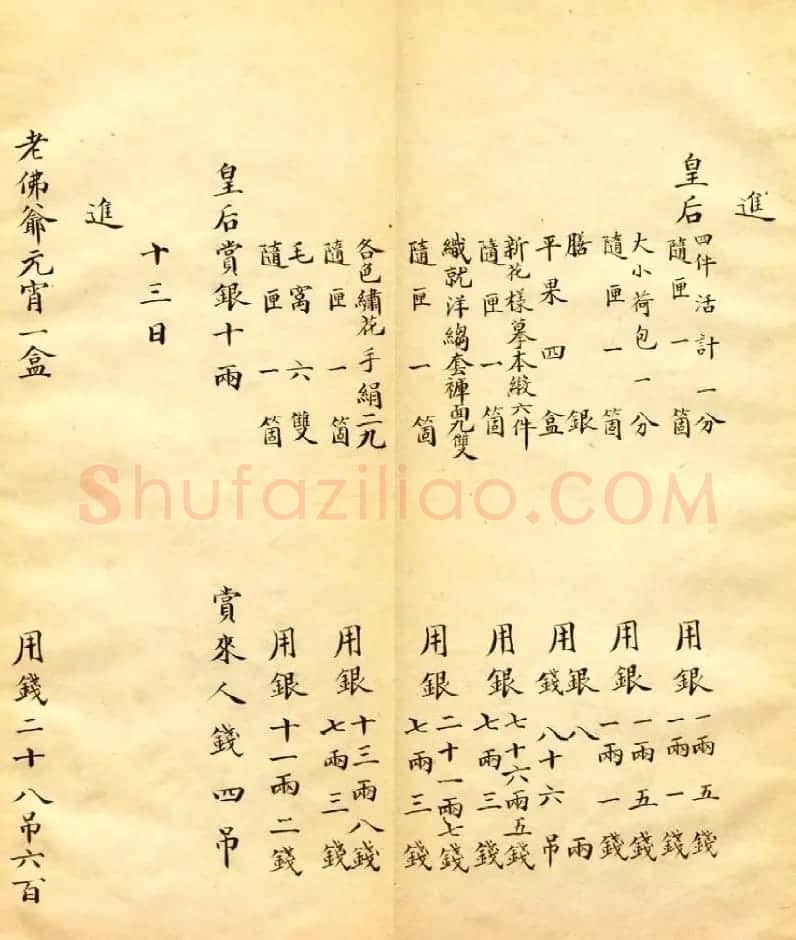 進
皇后
四件活計一分
隨匣一箇
用銀
一兩五錢
一兩一錢
大小荷包一分
隨匣一箇
用銀
一兩五錢
一兩一錢
膳銀
平果四盒
用
銀八兩
錢八十六吊
新花樣摹本緞六件
隨匣一箇
用銀
七十六兩五錢
七兩三錢
織就洋縐套褲面九雙
隨匣一箇
用銀
二十一兩七錢
七兩三錢
各色繡花手絹二九
隨匣一箇
用銀
十三兩八錢
七兩三錢
毛窩六雙
隨匣一箇
用銀十一兩二錢
皇后賞銀十兩
賞來人錢四吊
十三日
進
老佛爺元宵一盒
用錢二十八吊六百
Shufaziliao.COM